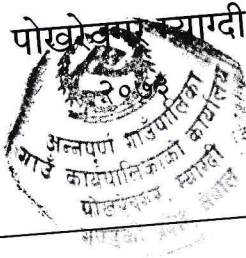 पोखरेबगर म्याग्दी
२०७३
अन्नपूर्ण गाउँपालिका
गाउँ कार्यपालिकाको कार्यालय
पोखरेबगर, म्याग्दी